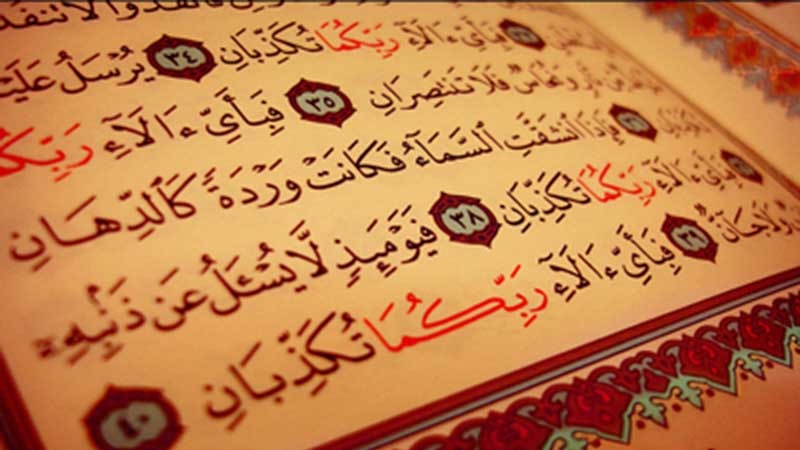 فَٱنفُذُوا۟ لَا تَنفُذُ
فَبِأَىِّ ءَالَآءِ رَبِّكُمَا تُكَذِّبَانِ ٣٤ يُرْسَلُ عَلَيْ
نَّارٍ وَنُحَاسٌ فَلَا تَنتَصِرَانِ ٣٥ فَبِأَىِّ ءَالَآءِ رَبِّكُ
تُكَذِّبَانِ ٣٦ فَإِذَا ٱنشَقَّتِ ٱلسَّمَآءُ فَكَانَتْ وَرْدَةً كَٱلدِّهَانِ
فَبِأَىِّ ءَالَآءِ رَبِّكُمَا تُكَذِّبَانِ ٣٨ فَيَوْمَئِذٍ لَّا يُسْـَٔلُ عَن ذَنۢبِهِۦٓ
وَلَا جَآنٌّ ٣٩ فَبِأَىِّ ءَالَآءِ رَبِّكُمَا تُكَذِّبَانِ ٤٠